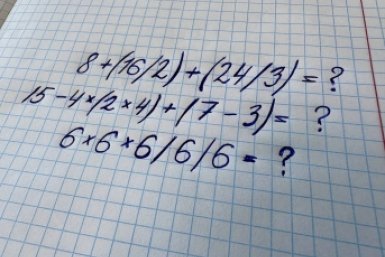 8+(16/2)+(24/3)=?
15-4×(2×4)+(7-3)=?
6×6×6/6/6=?